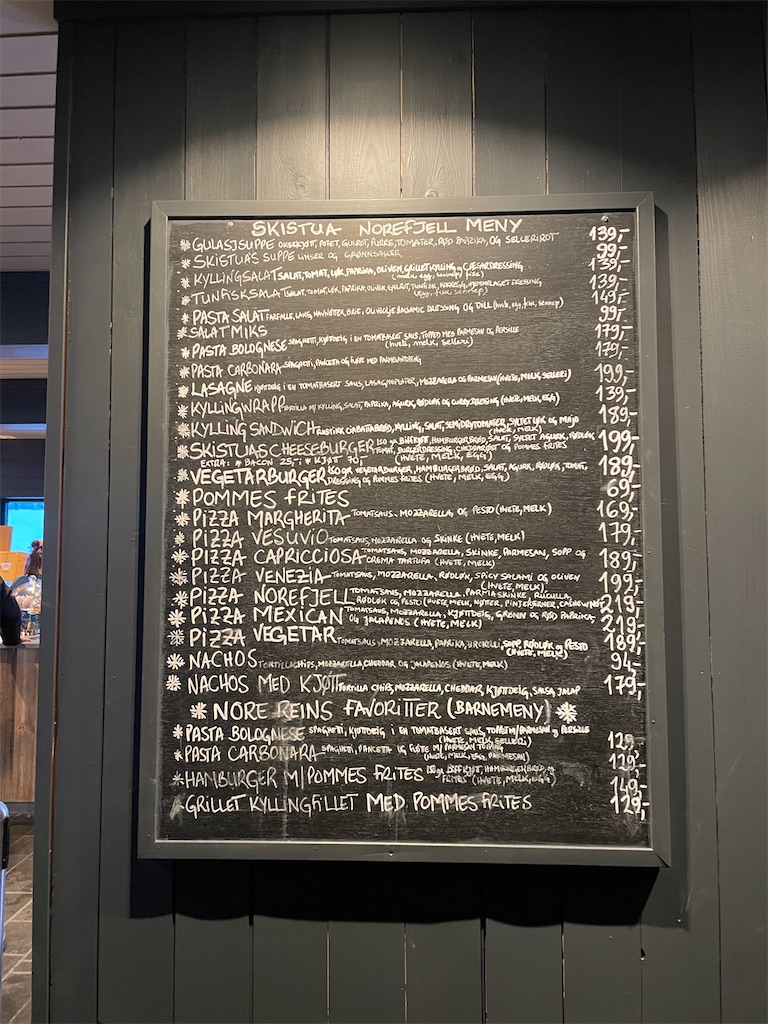 SKISTUA NOREFJELL MENY
* GULASJSUPPE OKSEKJØTT, POTET, GULROT, PURRE, TOMATER, RØD PAPRIKA, OG SELLERIROT 139,-
* SKISTUA'S SUPPE LINSER OG GRØNNSAKER 99,-
* KYLLINGSALAT SALAT, TOMAT, LØK, PAPRIKA, OLIVEN, GRILLET KYLLING OG CÆSARDRESSING 139,-
(melk, egg, sennep, fisk)
* TUNFISKSALAT SALAT, TOMAT, LØK, PAPRIKA, OLIVEN, GULROT, TUNFISK, HJEMMELAGET DRESSING 139,-
(egg, fisk, sennep)
149,-
* PASTA SALAT FARFALLE, LAKS, OLIVENOLJE BALSAMIC DRESSING OG DILL (hvete, egg, fisk, sennep)
* SALAT MIKS 99,-
* PASTA BOLOGNESE SPAGHETTI, KJØTTDEIG I EN TOMATBASERT SAUS, TOPPED MED PARMESAN OG PERSILLE 179,-
(hvete, melk, selleri)
* PASTA CARBONARA SPAGHETTI, PANCETA OG FLØTE MED 179,-
* LASAGNE KJØTTDEIG I EN TOMATBASERT SAUS, LASAGNEPLATER, MOZZARELLA OG PARMESAN (HVETE, MELK, SELLERI) 199,-
* KYLLINGWRAPP TORTILLA M/ KYLLING, SALAT, PAPRIKA, AGURK, RØDLØK OG CURRYDRESSING (HVETE, MELK, EGG) 139,-
* KYLLING SANDWICH RUSTIKK CIABATTABRØD, KYLLING, SALAT, SEMIDRYTOMATER, SYLTET LØK OG MAJO 189,-
(HVETE, MELK)
* SKISTUAS CHEESEBURGER 150 gr BIFFKJØTT, HAMBURGERBRØD, SALAT, SYLTET AGURK, RØDLØK, 199,-
TOMAT, BURGERDRESSING CHEDDAROST OG POMMES FRITES
EXTRA: * BACON 25,- * KJØTT 90,- (HVETE, MELK, EGG)
* VEGETARBURGER 150 gr VEGETARBURGER, HAMBURGERBRØD, SALAT, AGURK, RØDLØK, TOMAT, 189,-
DRESSING OG POMMES FRITES (HVETE, MELK, EGG)
* POMMES FRITES 69,-
* PIZZA MARGHERITA TOMATSAUS, MOZZARELLA OG PESTO (HVETE, MELK) 169,-
* PIZZA VESUVIO TOMATSAUS, MOZZARELLA OG SKINKE (HVETE, MELK) 179,-
* PIZZA CAPRICCIOSA TOMATSAUS, MOZZARELLA, SKINKE, PARMESAN, SOPP OG 189,-
CREMA TARTUFA (HVETE, MELK)
* PIZZA VENEZIA TOMATSAUS, MOZZARELLA, RØDLØK, SPICY SALAMI OG OLIVEN 199,-
(HVETE, MELK)
* PIZZA NOREFJELL TOMATSAUS, MOZZARELLA, PARMASKINKE, RUCULLA, 219,-
RØDLØK OG PESTO (HVETE, MELK, NØTTER, PINJEKJERNER, CASHEWNØTT)
* PIZZA MEXICAN TOMATSAUS, MOZZARELLA, KJØTTDEIG, GRØNN OG RØD PAPRIKA, 219,-
OG JALAPENOS (HVETE, MELK)
* PIZZA VEGETAR TOMATSAUS, MOZZARELLA, PAPRIKA, BROKOLLI, SOPP, RØDLØK OG PESTO 189,-
(HVETE, MELK)
* NACHOS TORTILLACHIPS, MOZZARELLA, CHEDDAR, OG JALAPENOS (HVETE, MELK) 94,-
* NACHOS MED KJØTT TORTILLA CHIPS, MOZZARELLA, CHEDDAR, KJØTTDEIG, SALSA, JALAP 179,-
* NORE REINS FAVORITTER (BARNEMENY) *
* PASTA BOLOGNESE SPAGHETTI, KJØTTDEIG I EN TOMATBASERT SAUS, TOPPET M/PARMESAN OG PERSILLE 129,-
(HVETE, MELK, SELLERI)
* PASTA CARBONARA SPAGHETTI, PANCETA OG FLØTE M/ PARMESAN TOPPING 129,-
(HVETE, MELK, EGG, PARMESAN)
* HAMBURGER M/POMMES FRITES 150 gr BIFFKJØTT, HAMBURGERBRØD OG 149,-
FRITES (HVETE, MELK, EGG)
* GRILLET KYLLINGFILLET MED POMMES FRITES 129,-